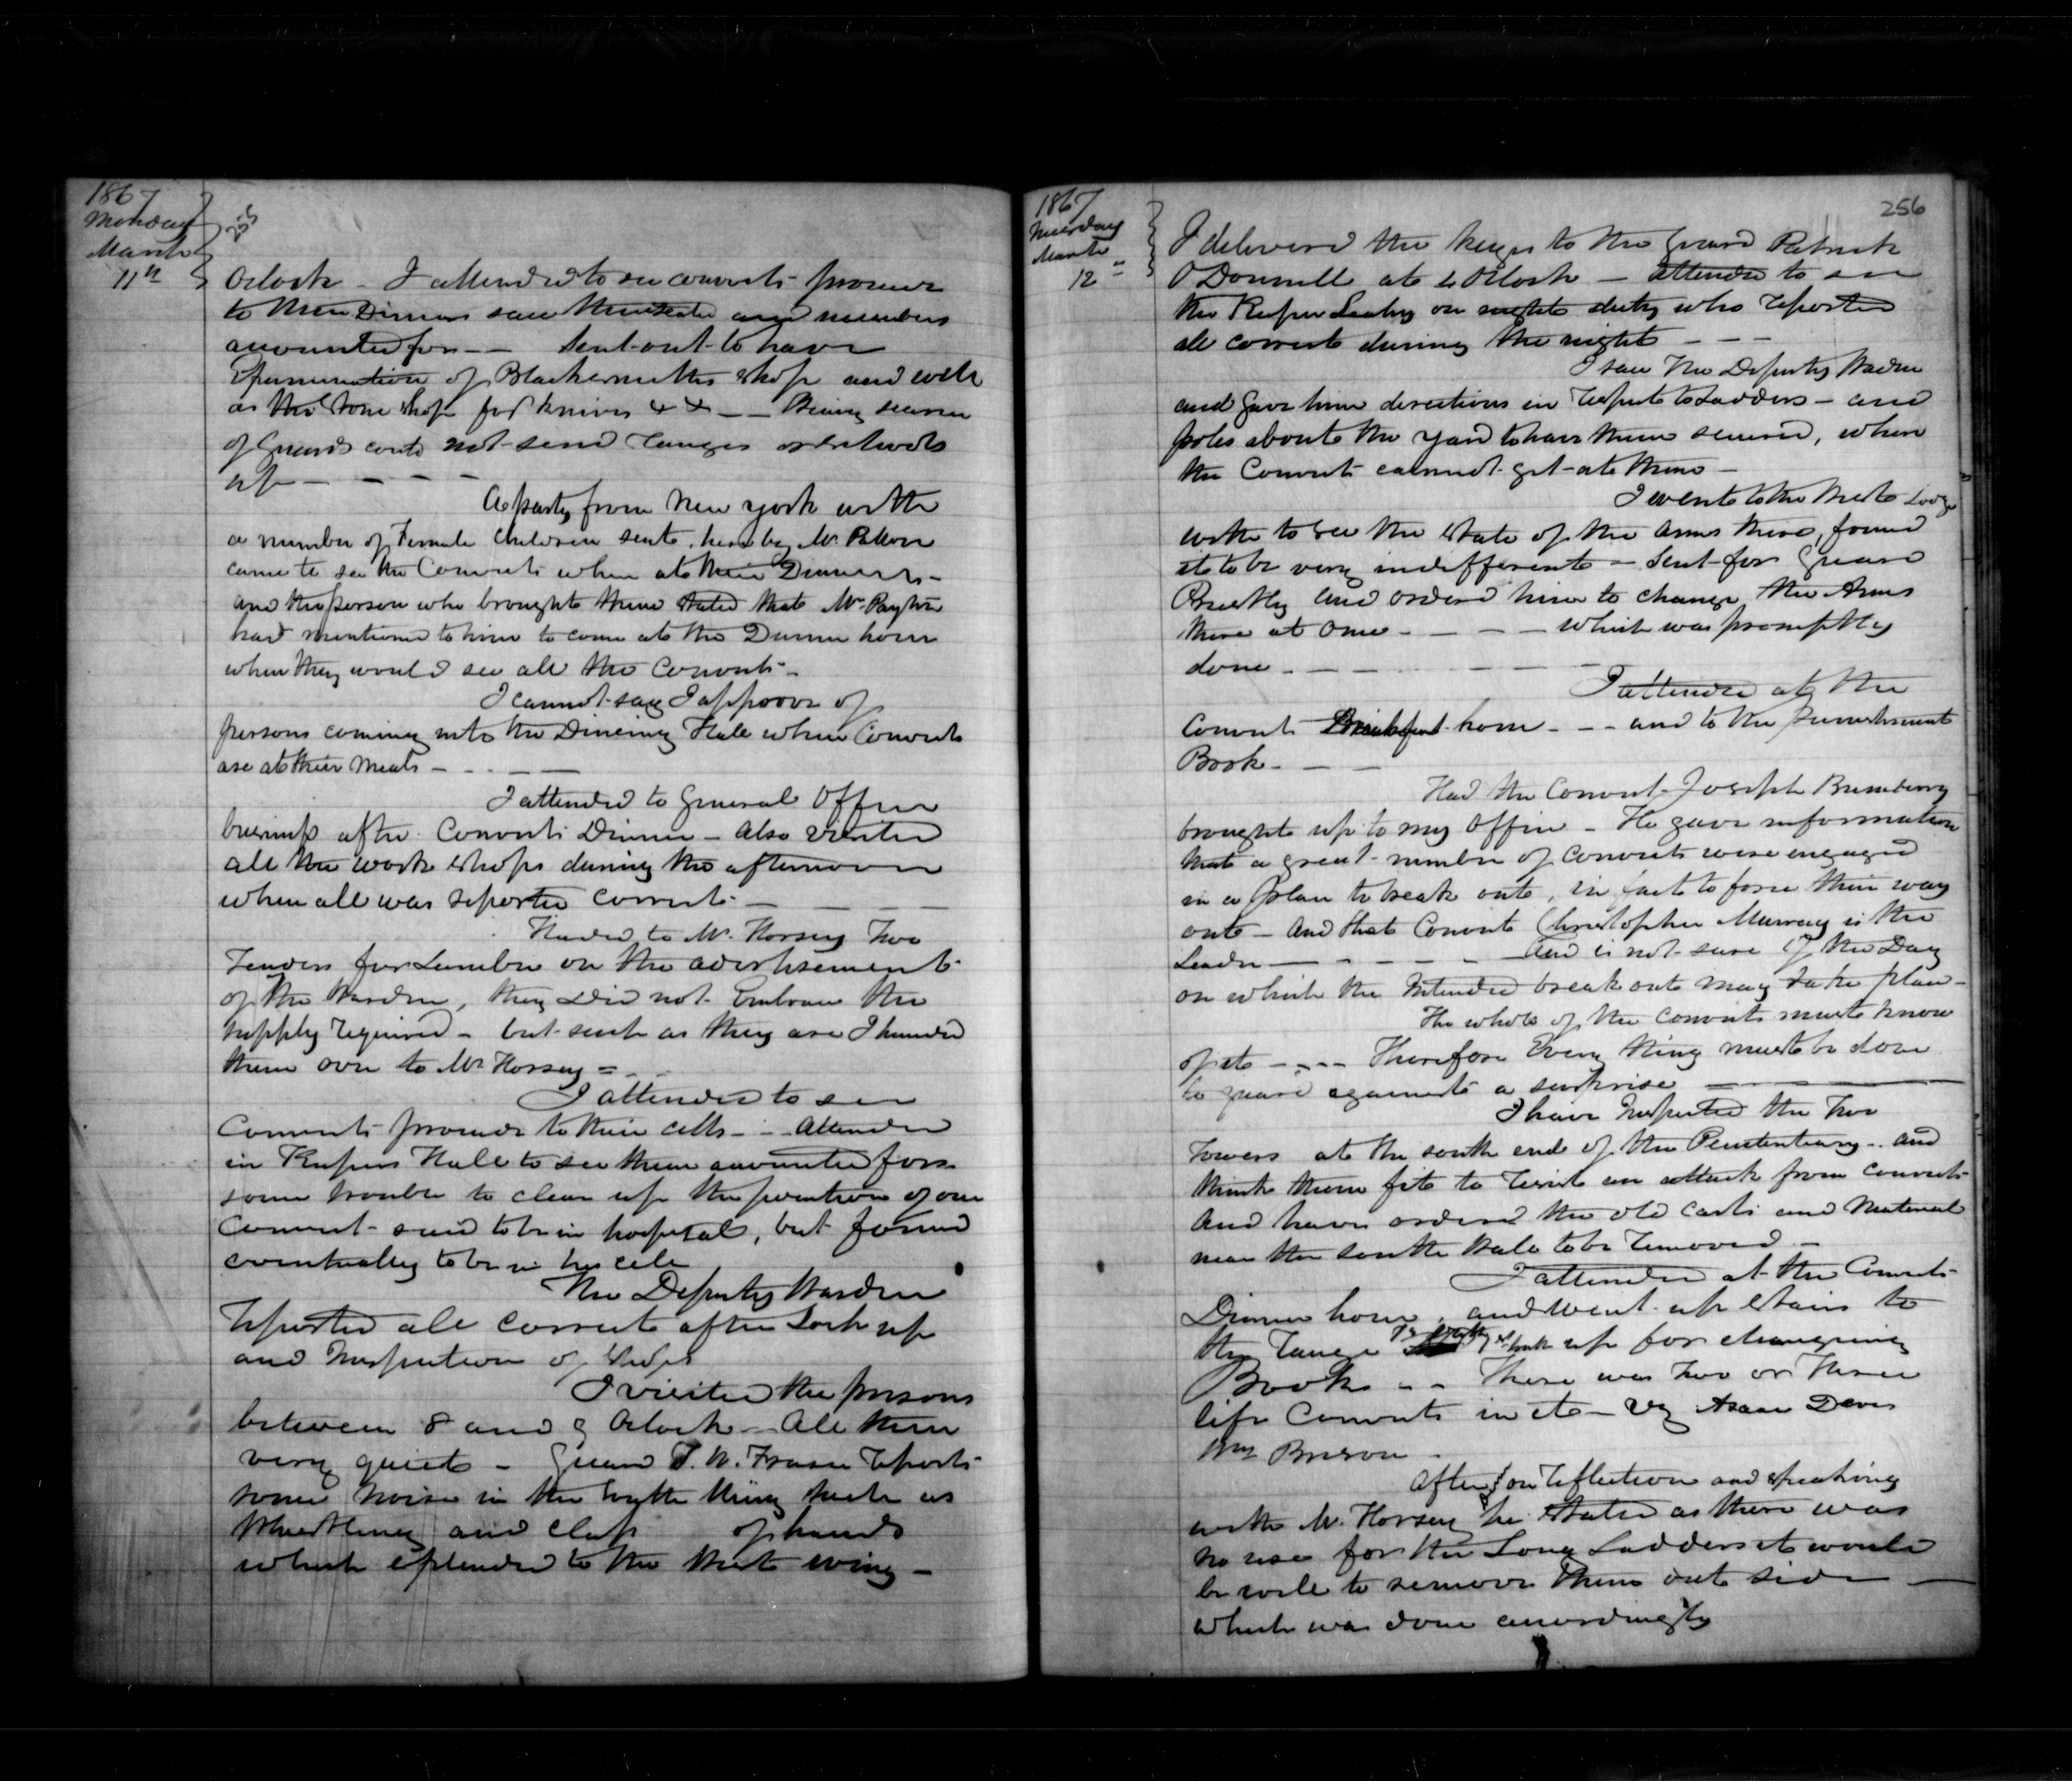 1867
Monday
March
11th
255
Oclock - I attended to see convicts proceed
to their Dinners saw them seated and numbers
accounted for - - Sent out to have
Examination of Blacksmiths Shop and well
as the Stone Shop for knives &c - - Being
of Guards could not send
up - - - -
A party from New York with
a number of Female Children sent here by Mr.
came to see the Convicts when at their Dinners -
and the person who brought them stated that Mr.
had mentioned to him to come at the Dinner hour
when they would see all the Convicts -
I cannot say I approve of
persons coming into the Dineing Hall when Convicts
are at their Meals - - - -
I attended to General Office
business after Convicts Dinner - Also visited
all the work Shops during the afternoon
when all was reported correct - - -
Handed to Mr. Horsey Two
Tenders for Lumber on the advertisement
of the Warden, they Did not Embrace the
supply required - but such as they are I handed
them over to Mr Horsey =
I attended to see
Convicts proceed to their cells - - Attended
in Keepers Hall to see them accounted for
some trouble to clear up the position of one
Convict - said to be in hospital, but found
eventually to be in his cell
The Deputy Warden
reported all correct after Lock up
and Inspection of
I visited the prisons
between 8 and 9 Oclock - All then
very quiet - Guard T. W. Fraser reports
some noise in the Wing such as
Whistling and Clap of hands
which extended to the West wing -
1867
Tuesday
March
12
256
I delivered the keys to the Guard Patrick
O Donnell at 6 Oclock - attended to see
the Keeper Leahy on night duty who reported
all correct during the night - - -
I saw the Deputy Warden
and gave him directions in respect to Ladders - and
poles about the yard to have them secured, where
the Convicts cannot get at them -
I went to the North Lodge
with to see the State of the Arms there, found
it to be very indifferent - Sent for Guard
and ordered him to change the Arms
there at once - - - - which was promptly
done - - - - - -
I attended at the
Convicts Breakfast hour - - - and to the Punishment
Book - - -
Had the Convict Joseph
brought up to my Office - He gave information
that a great number of Convicts were engaged
in a plan to break out, in fact to force their way
out - And that Convict Christopher Murray is the
Leader - - - - - And is not sure of the Day
on which the Intended break out may take place -
The whole of the Convicts must know
of it - - - - Therefore Every thing must be done
to guard against a surprise - -
I have Inspected the Two
Towers at the south end of the Penitentiary - and
think them fit to resist an attack from Convicts
And have ordered the old Carts and Material
near the South Wall to be removed -
I attended at the Convicts
Dinner hour, and went up Stairs to
the range up for changeing
Books - - There was two or three
life Convicts in it - Viz Isaac Davis
Wm
After on reflection and speaking
with Mr. Horsey he Stated as there was
no use for the Long Ladders it would
be well to remove them out side -
which was done accordingly